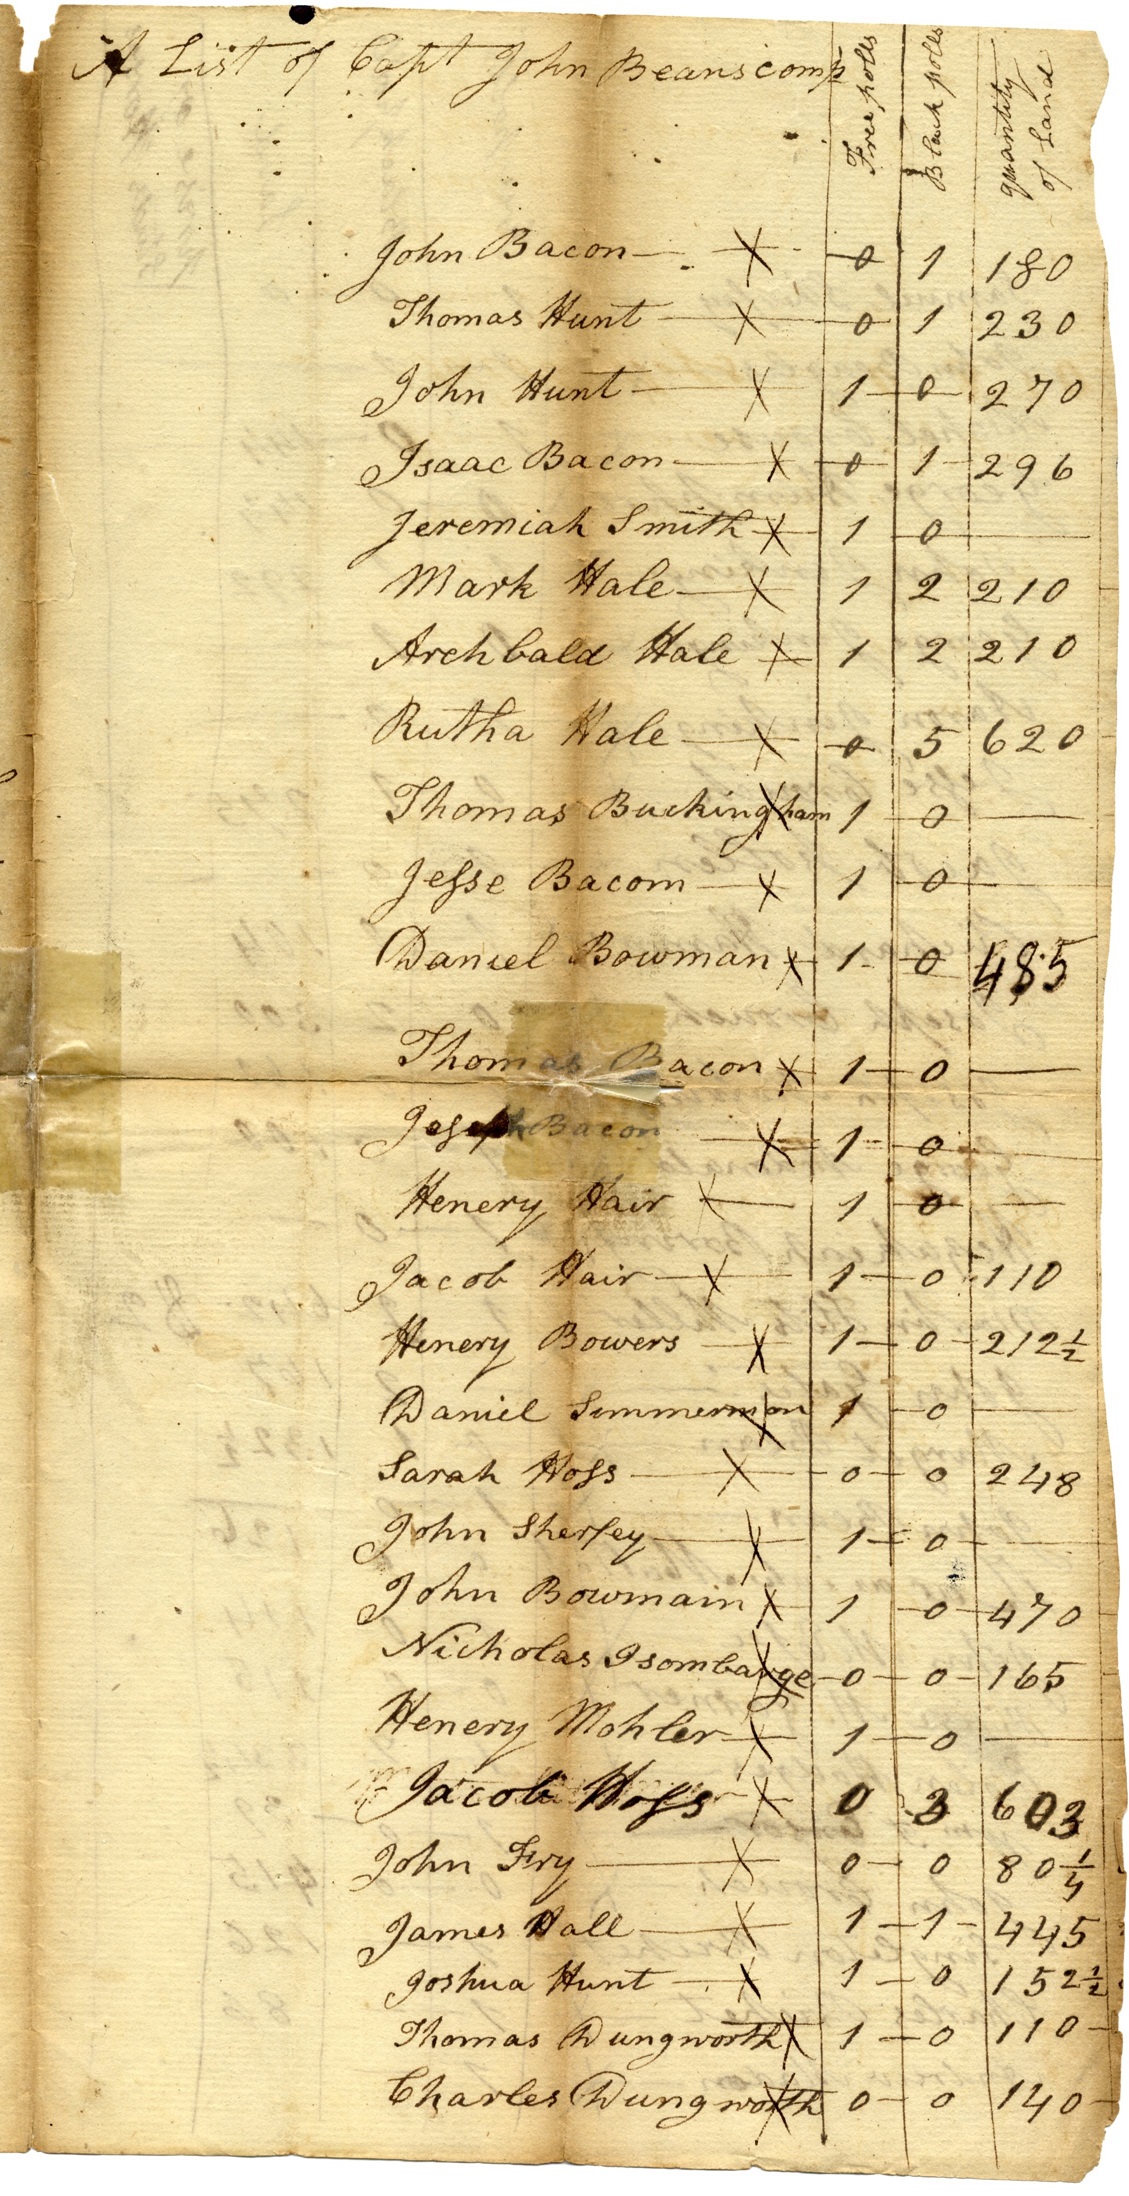 A List of Capt John Beanscomp
Free polls
Black polls
quantity of Land
John Bacon — X 0 1 180
Thomas Hunt — X 0 1 230
John Hunt — X 1 0 270
Isaac Bacon — X 0 1 296
Jeremiah Smith X 1 0 —
Mark Hale — X 1 2 210
Archbald Hale X 1 2 210
Rutha Hale — X 0 5 620
Thomas Buckingham X 1 0 —
Jesse Bacom — X 1 0 —
Daniel Bowman X 1 0 485
Thomas Bacon X 1 0 —
Joseph Bacon — X 1 0 —
Henery Hair X — 1 0 —
Jacob Hair — X 1 0 110
Henery Bowers — X 1 0 212½
Daniel Simmermon X 1 0 —
Sarah Hoss — X 0 0 248
John Sherfey — X 1 0 —
John Bowmain X 1 0 470
Nicholas Isombarge X 0 0 165
Henery Mohler X 1 0 —
Jacob Hoss X 0 3 603
John Fry — X 0 0 80¼
James Hall — X 1 1 445
Joshua Hunt — X 1 0 152½
Thomas Dungworth X 1 0 110
Charles Dungworth X 0 0 140